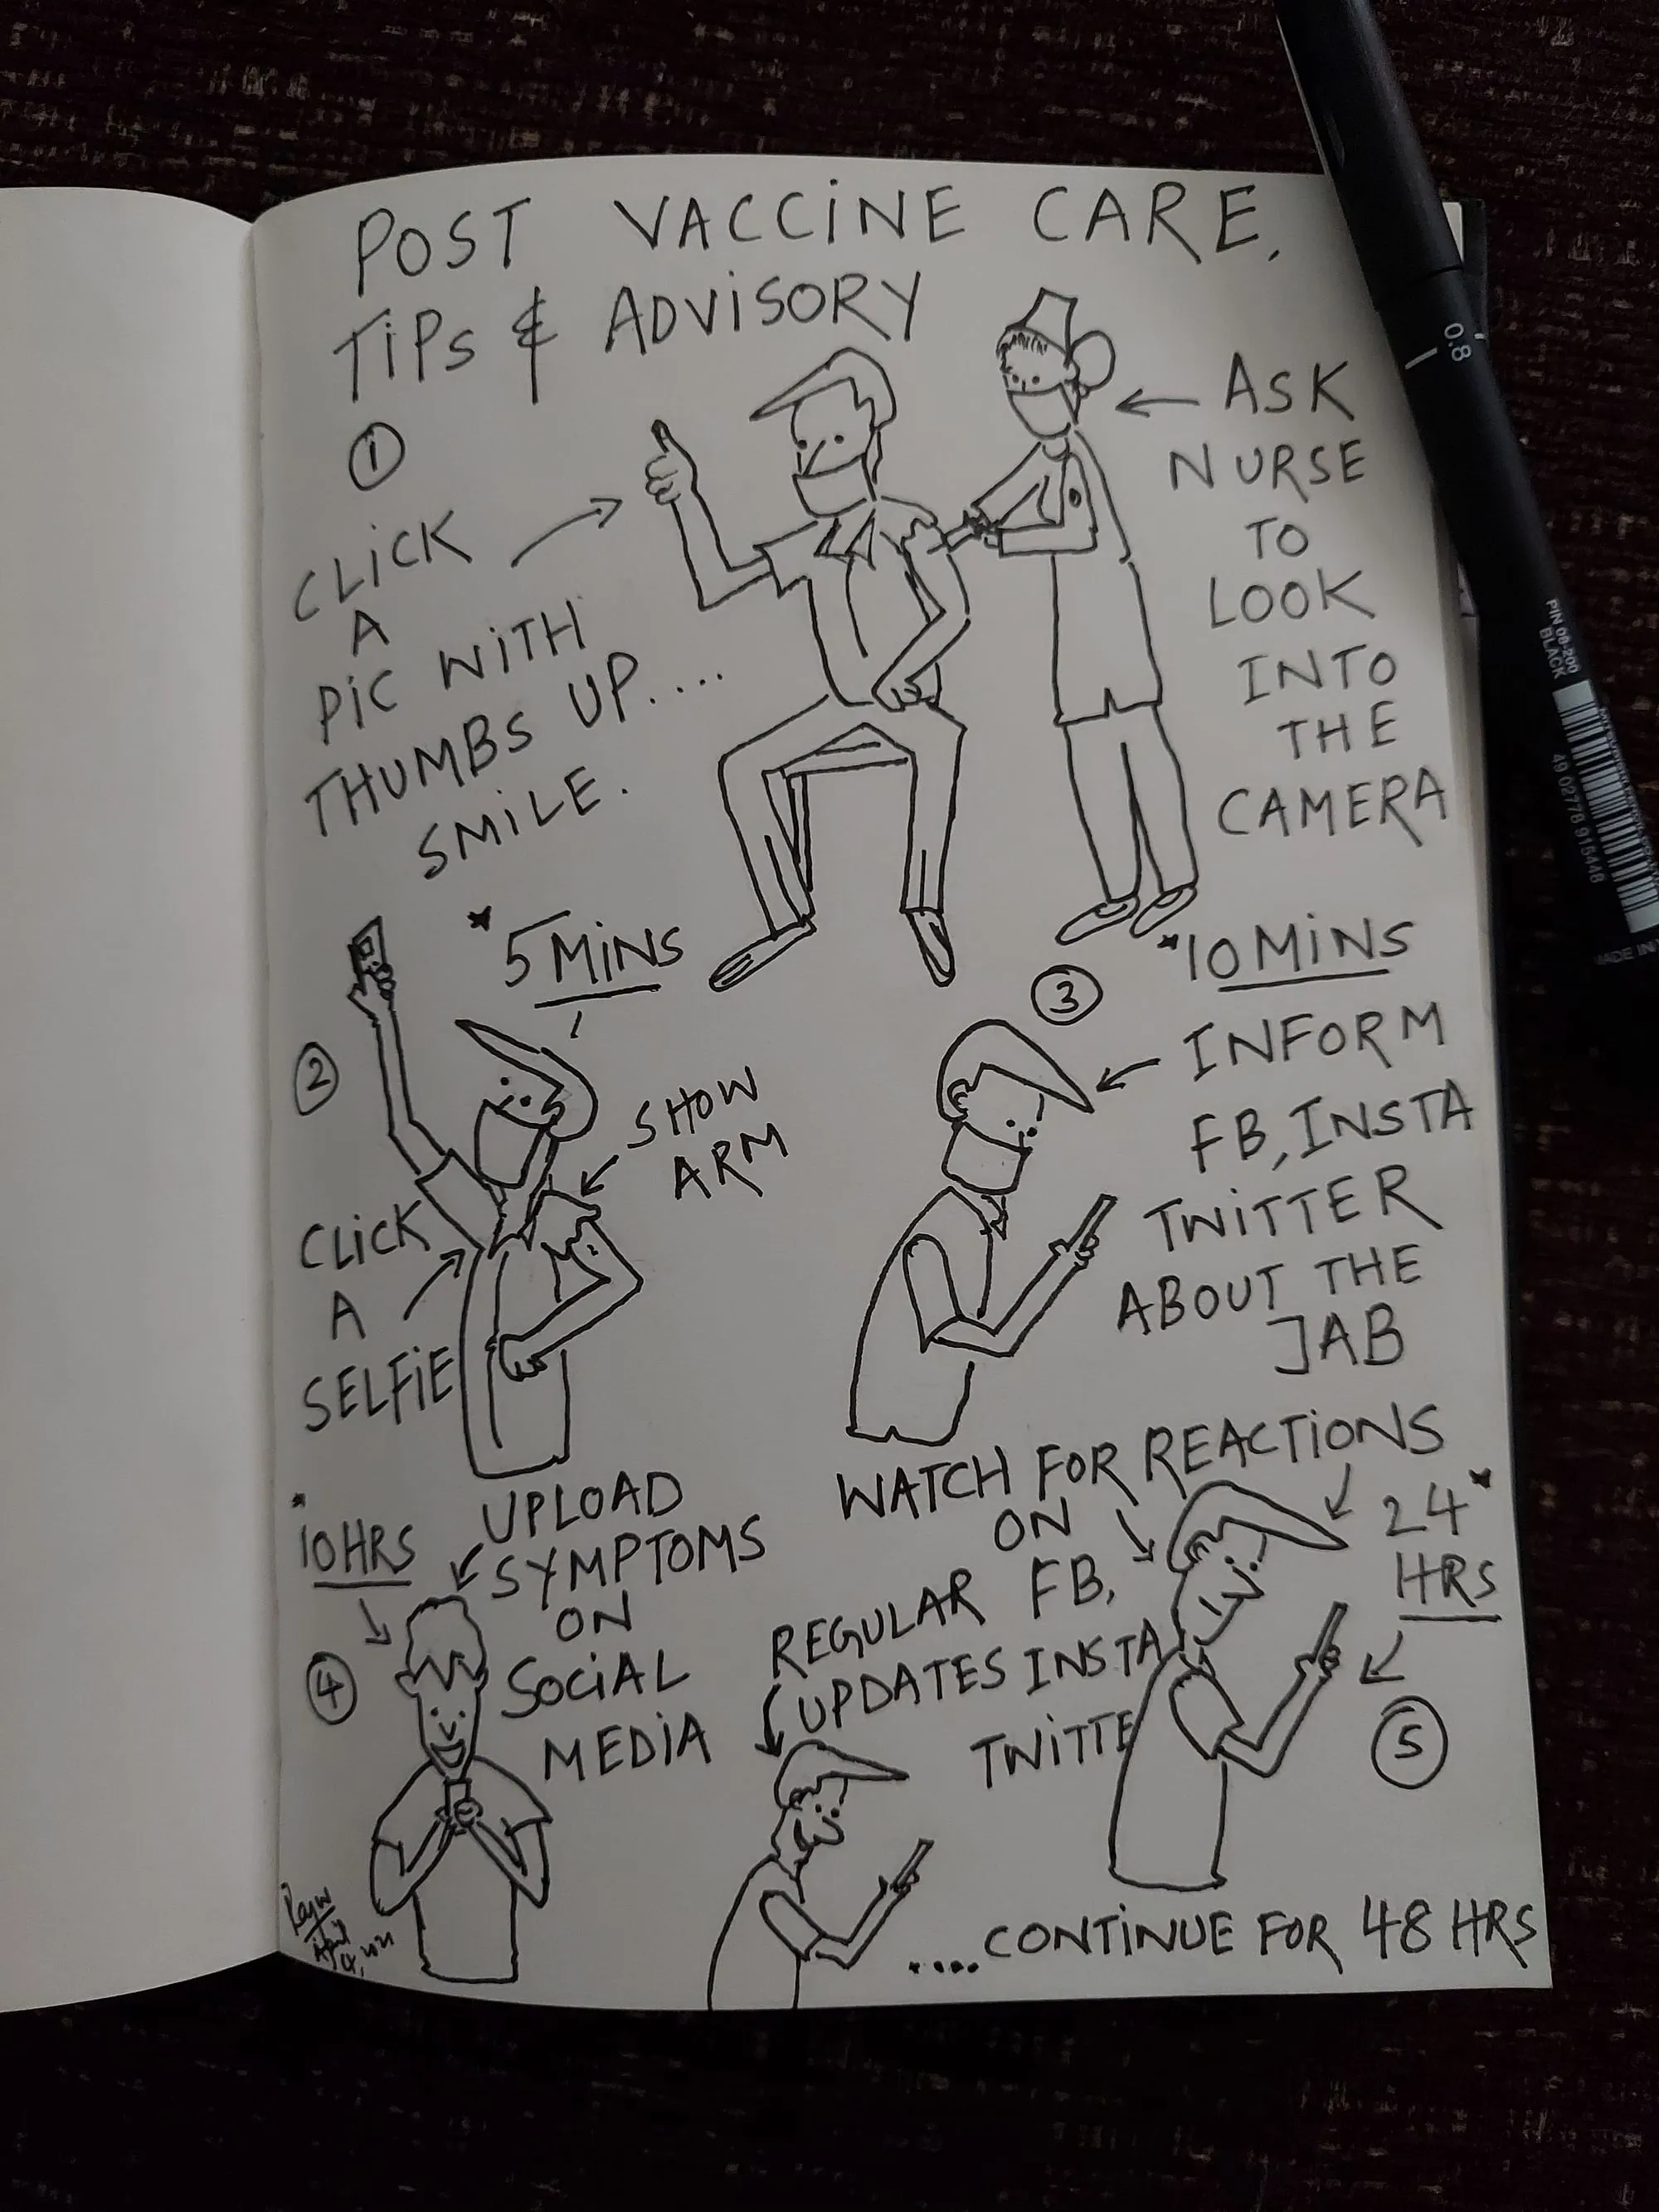 POST VACCINE CARE,
TIPS & ADVISORY
1
CLICK
A
PIC WITH
THUMBS UP....
SMILE.
ASK
NURSE
TO
LOOK
INTO
THE
CAMERA
* 5 MINS
2
CLICK
A
SELFIE
SHOW
ARM
* 10 MINS
3
INFORM
FB, INSTA
TWITTER
ABOUT THE
JAB
* 10 HRS
4
UPLOAD
SYMPTOMS
ON
SOCIAL
MEDIA
WATCH FOR REACTIONS
ON
FB,
INSTA
TWITTE
24 *
HRS
5
REGULAR
UPDATES
....CONTINUE FOR 48 HRS
April
0.8
PIN 08-200
BLACK
49 02778 915448
MADE IN